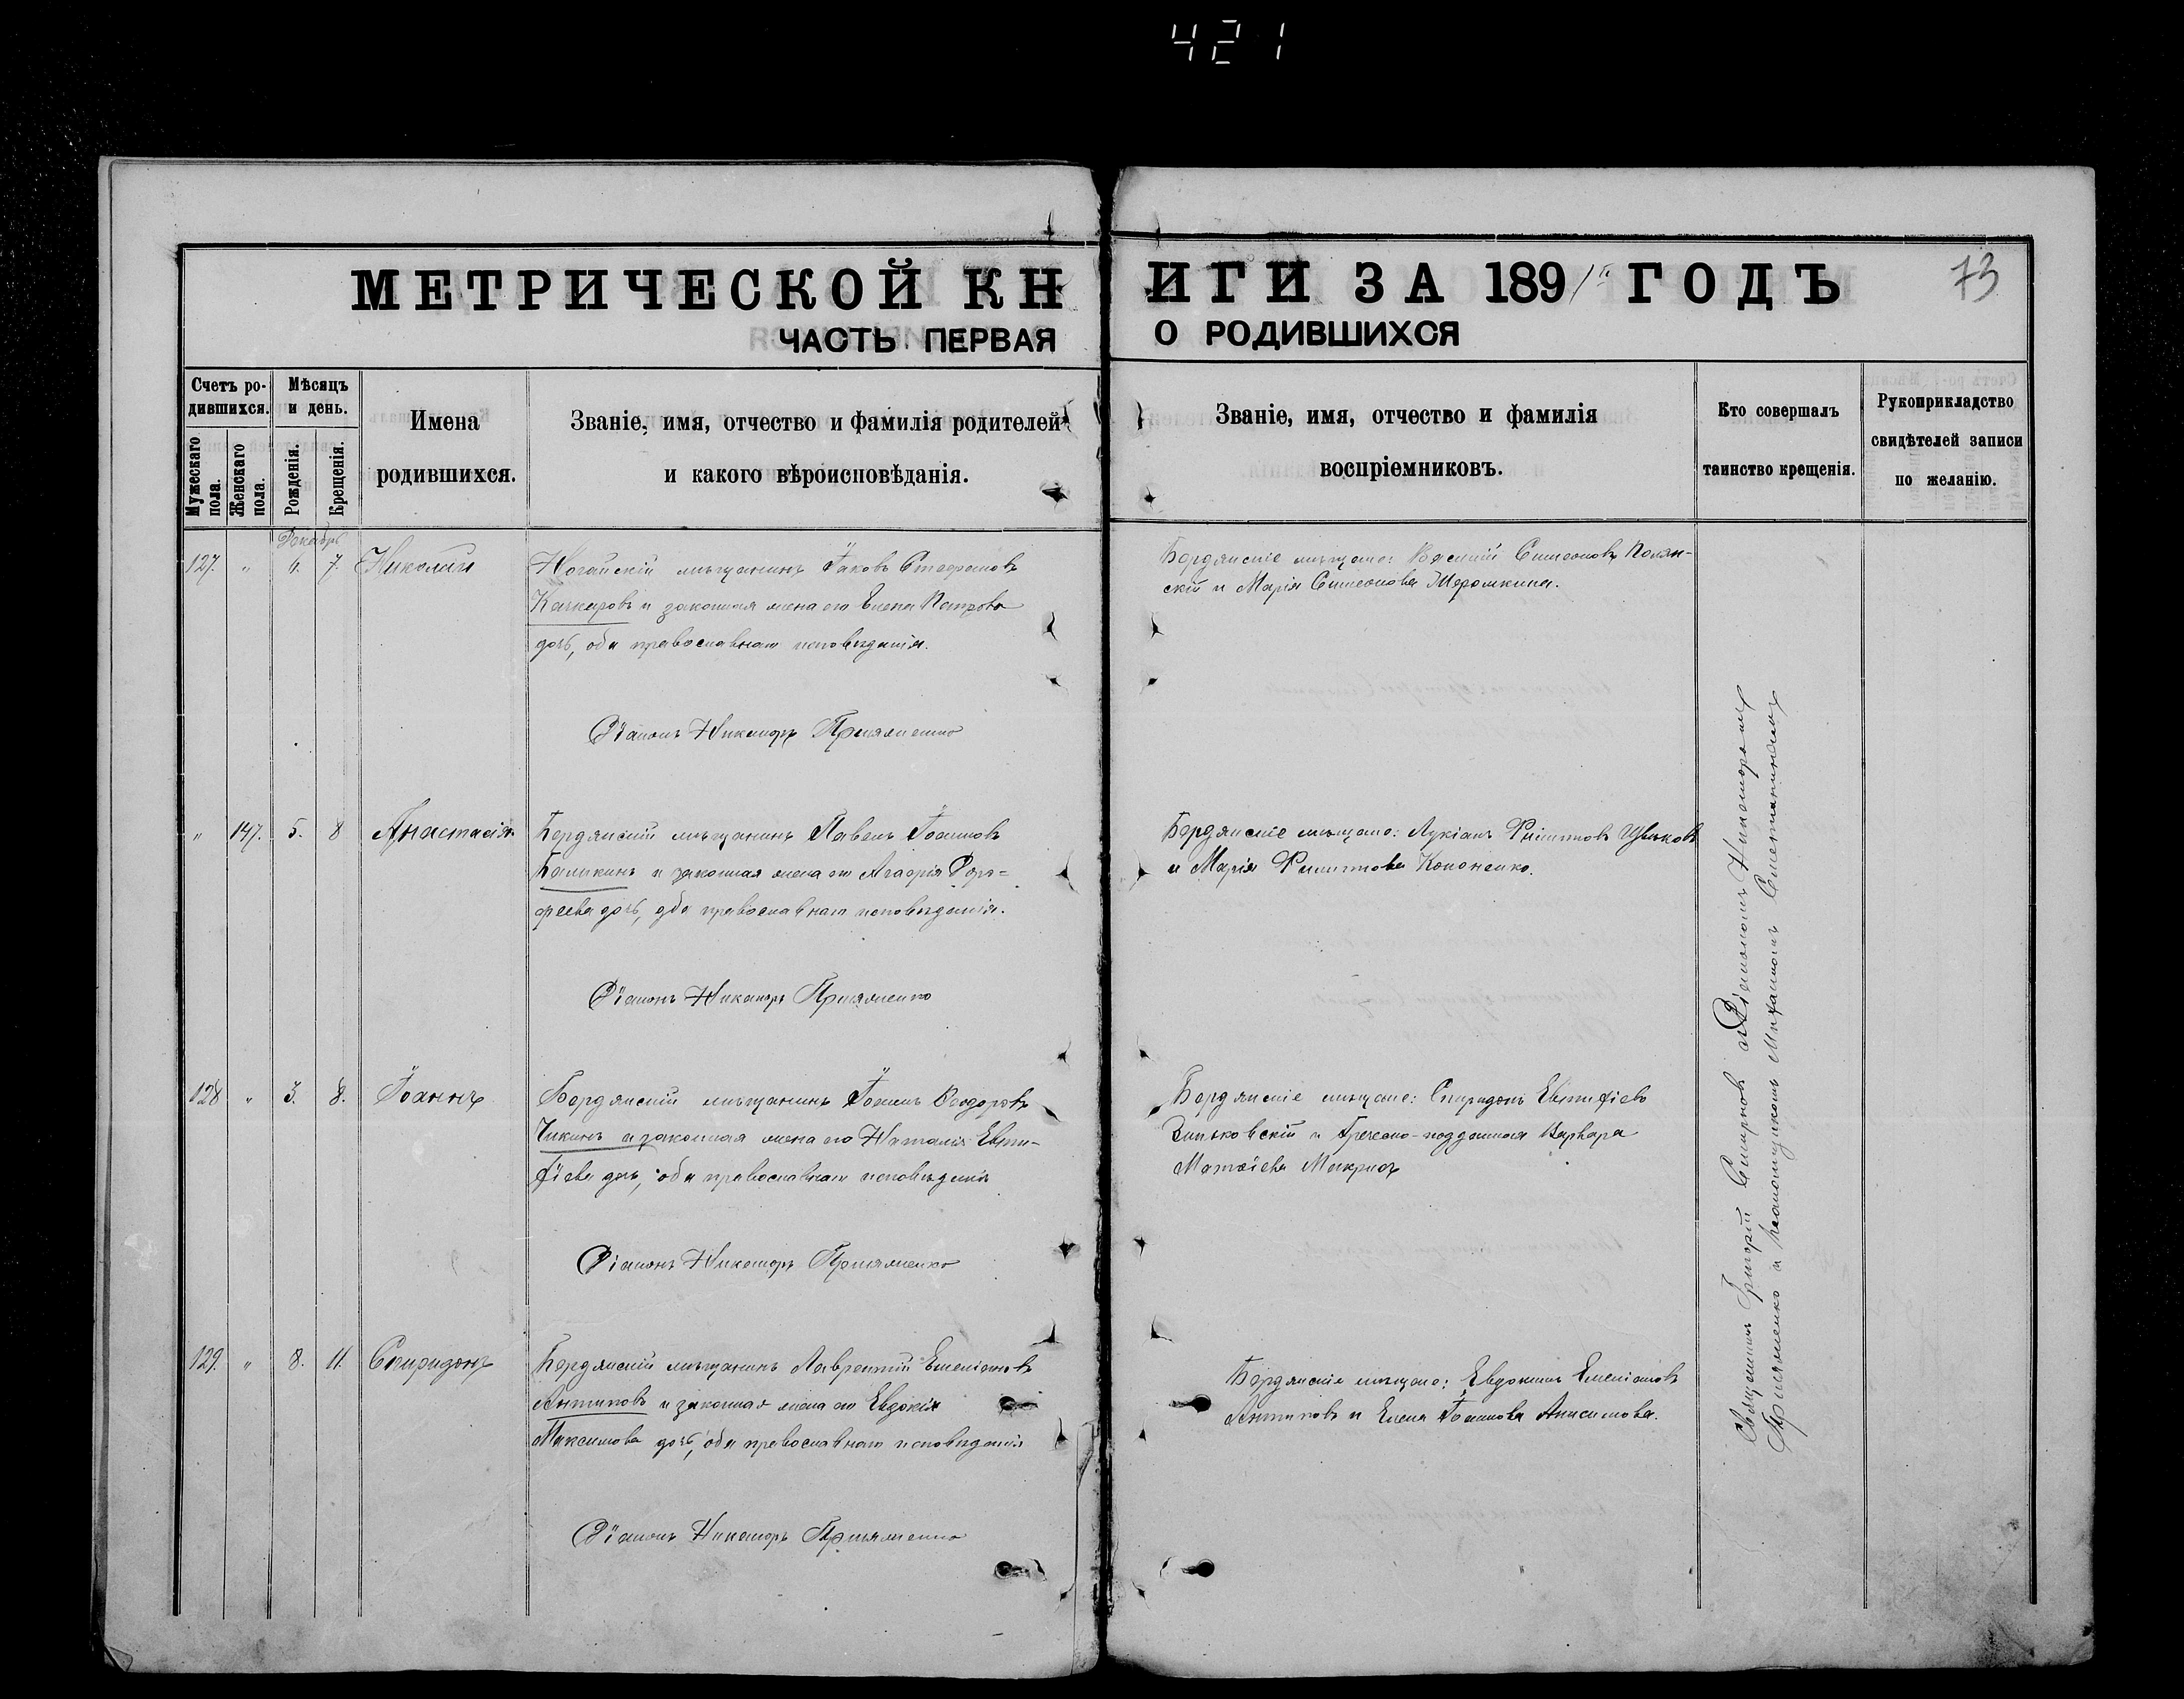 421
МЕТРИЧЕСКОЙ КНИГИ ЗА 1891й ГОДЪ
73
ЧАСТЬ ПЕРВАЯ О РОДИВШИХСЯ
Счетъ ро-
дившихся.
Мужескаго пола.
Женскаго пола.
Мѣсяцъ
и день.
Рожденія.
Крещенія.
Имена
родившихся.
Званіе, имя, отчество и фамилія родителей
и какого вѣроисповѣданія.
Званіе, имя, отчество и фамилія
воспріемниковъ.
Кто совершалъ
таинство крещенія.
Рукоприкладство
свидѣтелей записи
по желанію.
Декабрь
127. " 7. Николай
Ногайскій мѣщанинъ Іаковъ Стефановъ
и законная жена его Елена Петрова
дочь, оба православнаго исповѣданія.
Діаконъ Никаноръ
Бердянскіе мѣщане: Василій Симеоновъ Полян-
скій и Марія Симеонова
" 147. 5. 8 Анастасія
Бердянскій мѣщанинъ Павелъ Іоанновъ
и законная жена его Агафія Доро-
феева дочь, оба православнаго исповѣданія.
Діаконъ Никаноръ
Бердянскіе мѣщане: Лукіанъ Филипповъ
и Марія Филиппова Кононенко.
128 " 3. 8. Іоаннъ
Бердянскій мѣщанинъ Іоаннъ Ѳеодоровъ
Чикинъ и законная жена его Наталія Евти-
фіева дочь, оба православнаго исповѣданія
Діаконъ Никаноръ
Бердянскіе мѣщане: Спиридонъ Евтифіевъ
Зиньковскій и Греческо-подданная Варвара
Матѳіева
129. " 8. 11. Спиридонъ
Бердянскій мѣщанинъ Лаврентій Емеліановъ
Антиповъ и законная жена его Евдокія
Максимова дочь, оба православнаго исповѣданія
Діаконъ Никаноръ
Бердянскіе мѣщане: Евдокимъ Емеліановъ
Антиповъ и Елена Іоаннова Анисимова.
Священникъ Григорій Смирновъ съ Діакономъ Никаноромъ
и псаломщикомъ